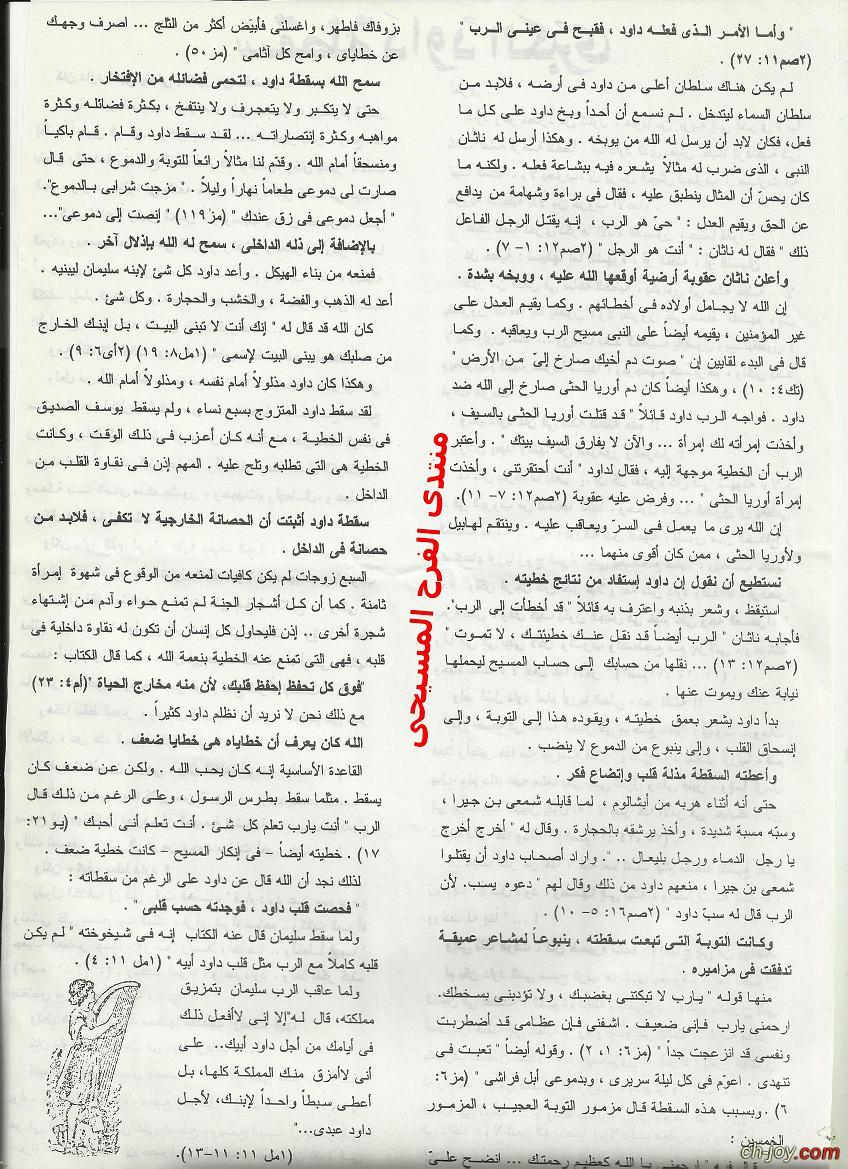 " وأما الأمر الذى فعله داود ، فقبح فى عينى الرب "
(٢صم١١: ٢٧) .
لم يكن هناك سلطان أعلى من داود فى أرضه ، فلابد من
سلطان السماء ليتدخل . لم نسمع أن أحداً وبخ داود على كل ما
فعل، فكان لابد أن يرسل له الله من يوبخه . وهكذا أرسل له ناثان
النبى ، الذى ضرب له مثالاً يشعره فيه ببشاعة فعله . ولكنه ما
كان يحسّ أن المثال ينطبق عليه ، فقال فى براءة وشهامة من يدافع
عن الحق ويقيم العدل : " حىّ هو الرب ، إنه يقتل الرجل الفاعل
ذلك " فقال له ناثان : " أنت هو الرجل " (٢صم١٢: ١– ٧) .
وأعلن ناثان عقوبة أرضية أوقعها الله عليه ، ووبخه بشدة .
إن الله لا يجامل أولاده فى أخطائهم . وكما يقيم العدل على
غير المؤمنين ، يقيمه أيضاً على النبى مسيح الرب ويعاقبه . وكما
قال فى البدء لقايين إن " صوت دم أخيك صارخ إلىّ من الأرض "
(تك٤: ١٠) ، وهكذا أيضاً كان دم أوريا الحثى صارخ إلى الله ضد
داود . فواجه الرب داود قائلاً " قد قتلت أوريا الحثى بالسيف ،
وأخذت إمرأته لك إمرأة ... والآن لا يفارق السيف بيتك " . وأعتبر
الرب أن الخطية موجهة إليه ، فقال لداود " أنت أحتقرتنى ، وأخذت
إمرأة أوريا الحثى " ... وفرض عليه عقوبة (٢صم١٢: ٧– ١١).
إن الله يرى ما يعمل فى السرّ ويعاقب عليه . وينتقم لهابيل
ولأوريا الحثى ، ممن كان أقوى منهما ...
نستطيع أن نقول إن داود إستفاد من نتائج خطيته .
استيقظ ، وشعر بذنبه واعترف به قائلاً " قد أخطأت إلى الرب".
فأجابه ناثان " الرب أيضاً قد نقل عنك خطيئتك ، لا تموت "
(٢صم١٢: ١٣) ... نقلها من حسابك إلى حساب المسيح ليحملها
نيابة عنك ويموت عنها .
بدأ داود يشعر بعمق خطيته ، ويقوده هذا إلى التوبة ، وإلى
إنسحاق القلب ، وإلى ينبوع من الدموع لا ينضب .
وأعطته السقطة مذلة قلب وإتضاع فكر .
حتى أنه أثناء هربه من أبشالوم ، لما قابله شمعى بن جيرا ،
وسبّه مسبة شديدة ، وأخذ يرشقه بالحجارة . وقال له " أخرج أخرج
يا رجل الدماء ورجل بليعال .. ". واراد أصحاب داود أن يقتلوا
شمعى بن جيرا ، منعهم داود من ذلك وقال لهم " دعوه يسب. لأن
الرب قال له سبّ داود " (٢صم١٦: ٥– ١٠) .
وكانت التوبة التى تبعت سقطته ، ينبوعاً لمشاعر عميقة
تدفقت فى مزاميره .
منها قوله " يارب لا تبكتنى بغضبك ، ولا تؤدبنى بسخطك.
ارحمنى يارب فإنى ضعيف . اشفنى فإن عظامى قد أضطربت
ونفسى قد انزعجت جداً " (مز٦: ١، ٢) . وقوله أيضاً " تعبت فى
تنهدى . اعوّم فى كل ليلة سريرى ، وبدموعى أبل فراشى " (مز٦:
٦) .وبسبب هذه السقطة قال مزمور التوبة العجيب ، المزمور
الخمسين :
يا الله كعظيم رحمتك ... انضح علىّ
بزوفاك فاطهر، واغسلنى فأبيَض أكثر من الثلج ... اصرف وجهك
عن خطاياى ، وامح كل آثامى " (مز٥٠) .
سمح الله بسقطة داود ، لتحمى فضائله من الإفتخار .
حتى لا يتكبر ولا يتعجرف ولا ينتفخ ، بكثرة فضائله وكثرة
مواهبه وكثرة إنتصاراته ... لقد سقط داود وقام . قام باكياً
ومنسحقاً أمام الله . وقدّم لنا مثالاً رائعاً للتوبة والدموع ، حتى قال
صارت لى دموعى طعاماً نهاراً وليلاً . " مزجت شرابى بالدموع".
" أجعل دموعى فى زق عندك " (مز١١٩) " إنصت إلى دموعى"...
بالإضافة إلى ذله الداخلى ، سمح له الله بإذلال آخر .
فمنعه من بناء الهيكل . وأعد داود كل شئ لإبنه سليمان ليبنيه .
أعد له الذهب والفضة ، والخشب والحجارة . وكل شئ .
كان الله قد قال له " إنك أنت لا تبنى البيت ، بل إبنك الخارج
من صلبك هو يبنى البيت لإسمى " (١مل٨: ١٩) (٢أى٦: ٩) .
وهكذا كان داود مذلولاً أمام نفسه ، ومذلولاً أمام الله .
لقد سقط داود المتزوج بسبع نساء ، ولم يسقط يوسف الصديق
فى نفس الخطية ، مع أنه كان أعزب فى ذلك الوقت ، وكانت
الخطية هى التى تطلبه وتلح عليه . المهم إذن فى نقاوة القلب من
الداخل .
سقطة داود أثبتت أن الحصانة الخارجية لا تكفى ، فلابد من
حصانة فى الداخل .
السبع زوجات لم يكن كافيات لمنعه من الوقوع فى شهوة إمرأة
ثامنة . كما أن كل أشجار الجنة لم تمنع حواء وآدم من إشتهاء
شجرة أخرى .. إذن فليحاول كل إنسان أن تكون له نقاوة داخلية فى
قلبه ، فهى التى تمنع عنه الخطية بنعمة الله ، كما قال الكتاب :
"فوق كل تحفظ إحفظ قلبك، لأن منه مخارج الحياة "(أم٤: ٢٣)
مع ذلك نحن لا نريد أن نظلم داود كثيراً .
الله كان يعرف أن خطاياه هى خطايا ضعف .
القاعدة الأساسية إنه كان يحب الله . ولكن عن ضعف كان
يسقط . مثلما سقط بطرس الرسول ، وعلى الرغم من ذلك قال
الرب " أنت يارب تعلم كل شئ . أنت تعلم أنى أحبك " (يو٢١:
١٧) . خطيته أيضاً – فى إنكار المسيح – كانت خطية ضعف .
لذلك نجد أن الله قال عن داود على الرغم من سقطاته :
" فحصت قلب داود ، فوجدته حسب قلبى " .
ولما سقط سليمان قال عنه الكتاب إنه فى شيخوخته " لم يكن
قلبه كاملاً مع الرب مثل قلب داود أبيه " (١مل ١١: ٤) .
ولما عاقب الرب سليمان بتمزيق
مملكته، قال له"إلا إنى لاأفعل ذلك
فى أيامك من أجل داود أبيك.. على
أنى لاأمزق منك المملكة كلها، بل
أعطى سبطاً واحداً لإبنك، لأجل
داود عبدى..."
(١مل ١١: ١١–١٣).
منتدى الفرح المسيحى
ch-joy.com